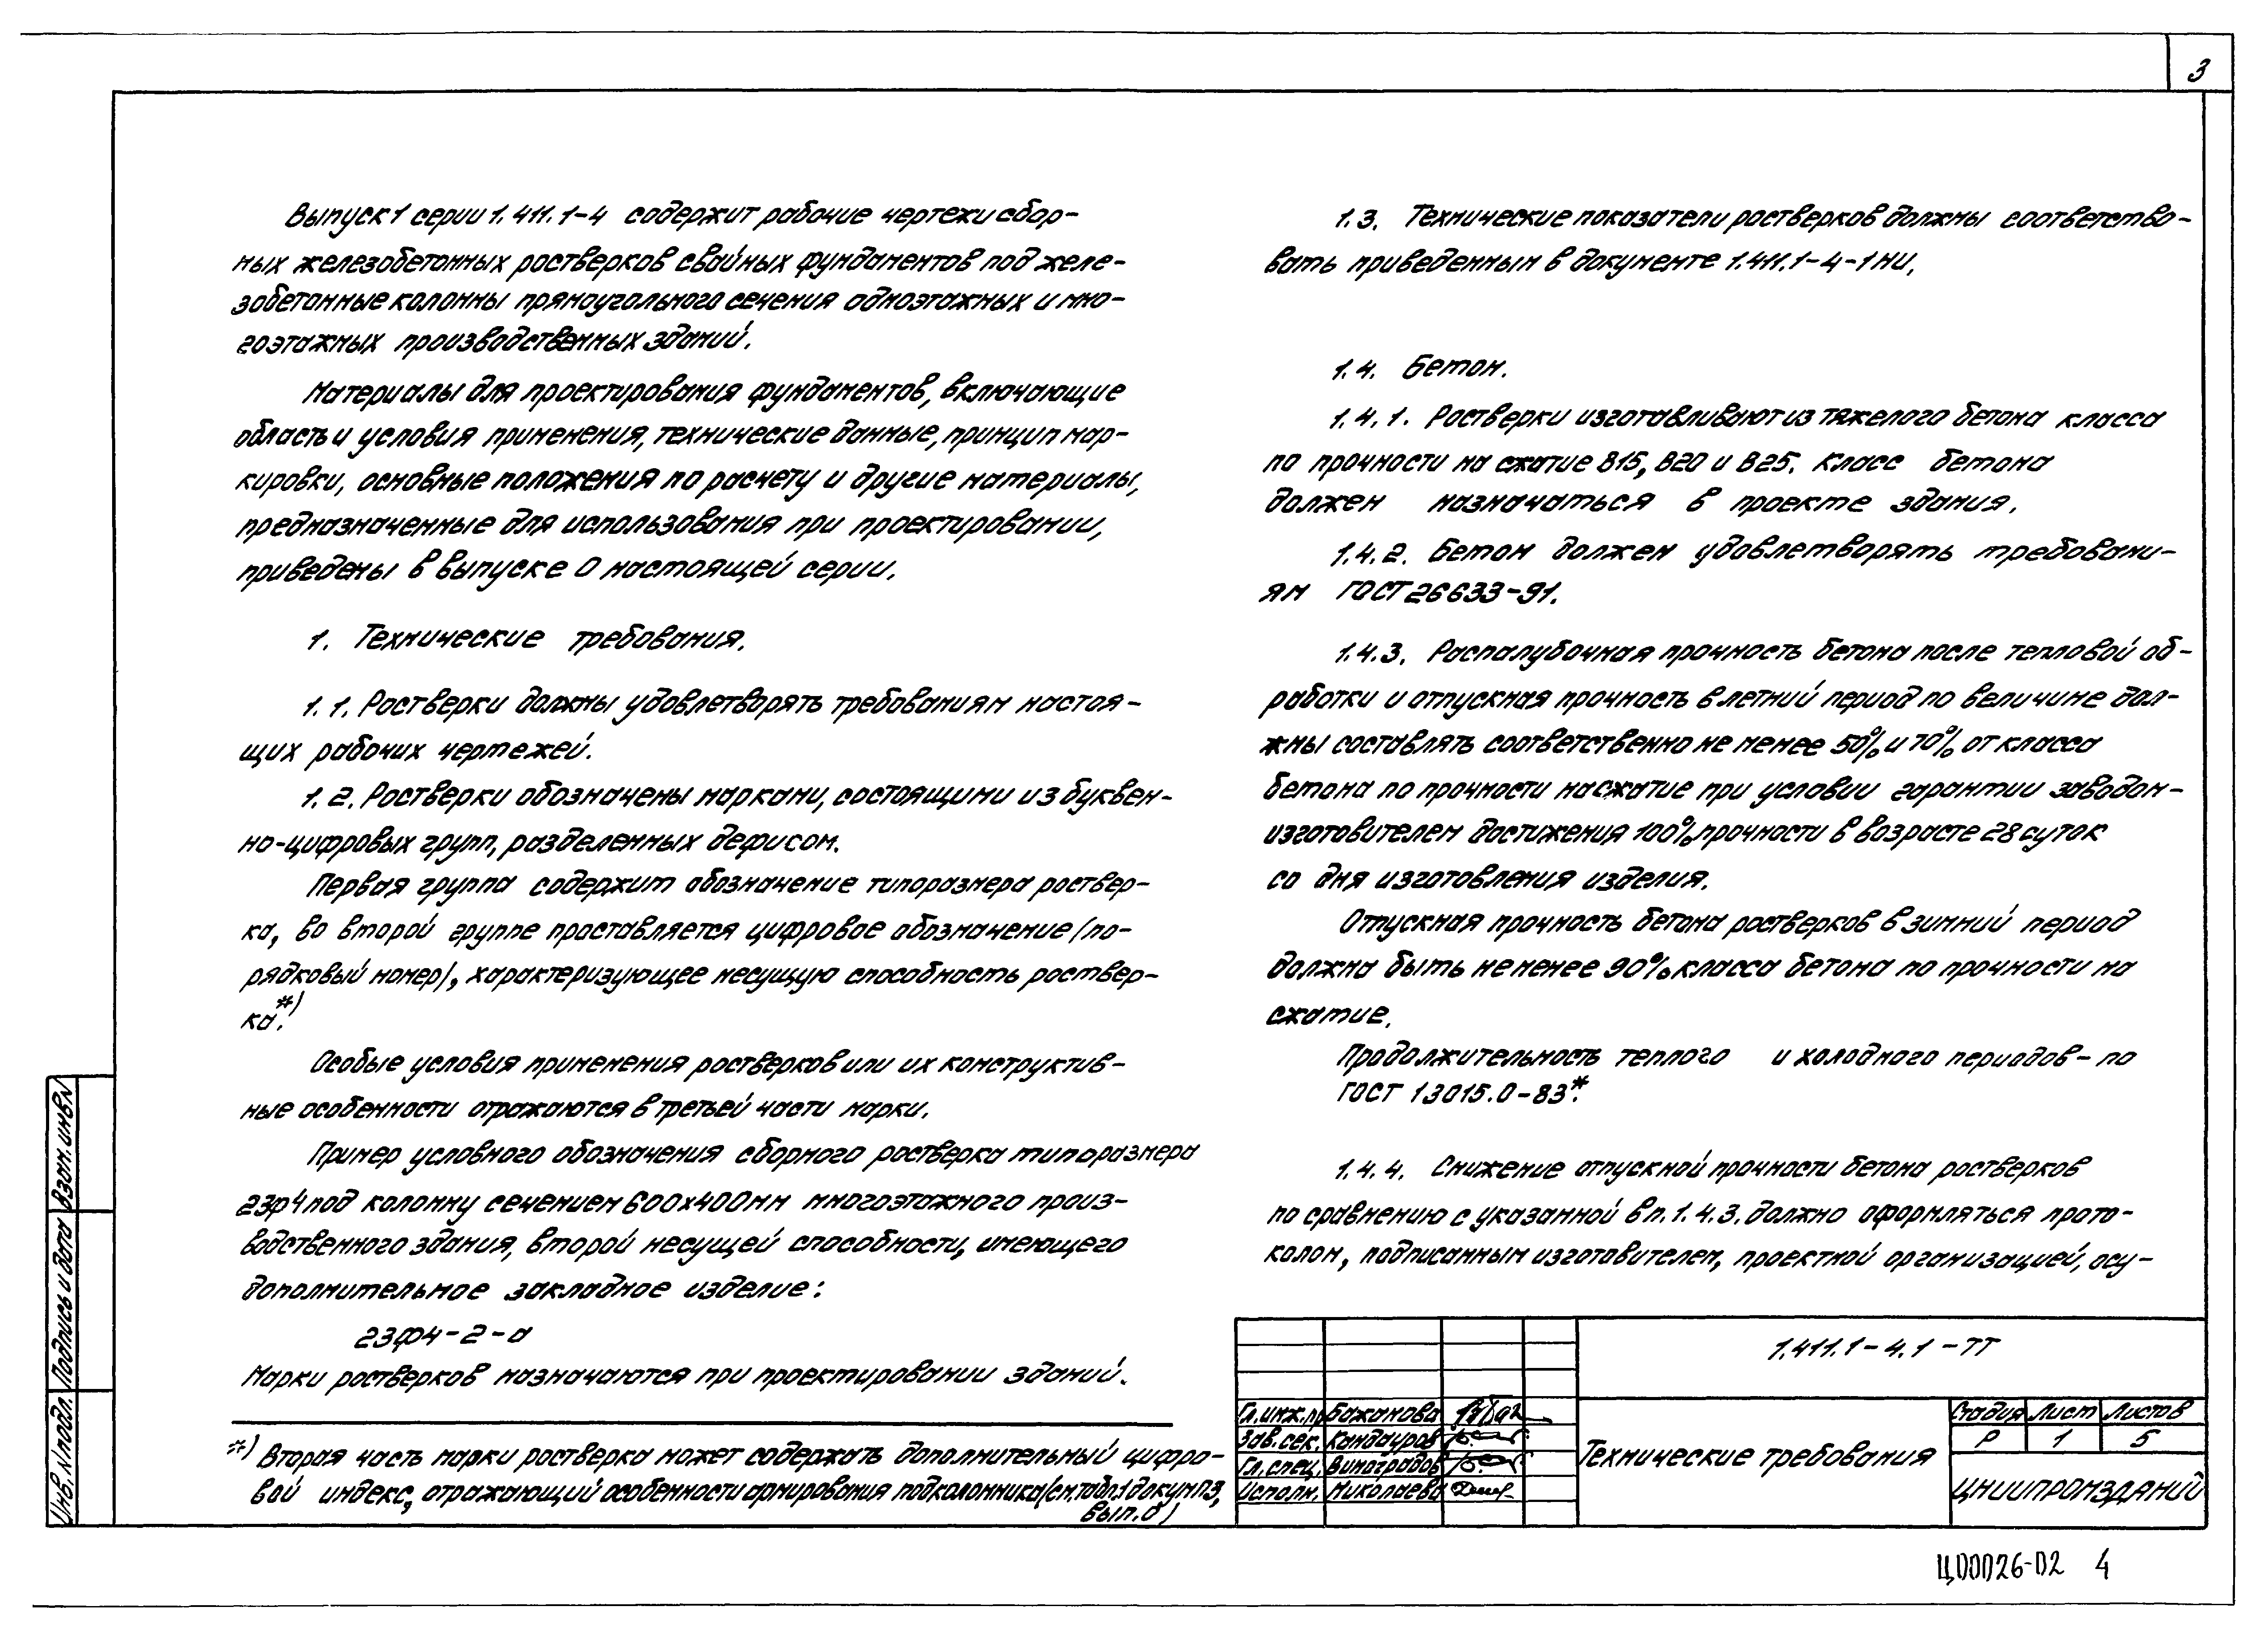 3
Выпуск 1 серии 1.411.1-4 содержит рабочие чертежи сбор-
ных железобетонных ростверков свайных фундаментов под желе-
зобетонные колонны прямоугольного сечения одноэтажных и мно-
гоэтажных производственных зданий.
Материалы для проектирования фундаментов, включающие
область и условия применения, технические данные, принцип мар-
кировки, основные положения по расчету и другие материалы,
предназначенные для использования при проектировании,
приведены в выпуске 0 настоящей серии.
1. Технические требования.
1.1. Ростверки должны удовлетворять требованиям настоя-
щих рабочих чертежей.
1.2. Ростверки обозначены марками, состоящими из буквен-
но-цифровых групп, разделенных дефисом.
Первая группа содержит обозначение типоразмера роствер-
ка, во второй группе проставляется цифровое обозначение (по-
рядковый номер), характеризующее несущую способность роствер-
ка.*)
Особые условия применения ростверков или их конструктив-
ные особенности отражаются в третьей части марки.
Пример условного обозначения сборного ростверка типоразмера
23ф4 под колонну сечением 600х400мм многоэтажного произ-
водственного здания, второй несущей способности, имеющего
дополнительное закладное изделие:
23ф4-2-а
Марки ростверков назначаются при проектировании зданий.
*) Вторая часть марки ростверка может содержать дополнительный цифро-
вой индекс, отражающий особенности армирования подколонника (см. табл. 1 докум ПЗ,
вып. 0)
1.3. Технические показатели ростверков должны соответство-
вать приведенным в документе 1.411.1-4-1НИ.
1.4. Бетон.
1.4.1. Ростверки изготавливают из тяжелого бетона класса
по прочности на сжатие В15, В20 и В25. Класс бетона
должен назначаться в проекте здания.
1.4.2. Бетон должен удовлетворять требовани-
ям ГОСТ 26633-91.
1.4.3. Распалубочная прочность бетона после тепловой об-
работки и отпускная прочность в летний период по величине дол-
жны составлять соответственно не менее 50% и 70% от класса
бетона по прочности на сжатие при условии гарантии заводом-
изготовителем достижения 100% прочности в возрасте 28 суток
со дня изготовления изделия.
Отпускная прочность бетона ростверков в зимний период
должна быть не менее 90% класса бетона по прочности на
сжатие.
Продолжительность теплого и холодного периодов - по
ГОСТ 13015.0-83*.
1.4.4. Снижение отпускной прочности бетона ростверков
по сравнению с указанной в п. 1.4.3. должно оформляться прото-
колом, подписанным изготовителем, проектной организацией, осу-
1.411.1-4.1-ТТ
Гл.инж.пр Бажанова
Зав.сек. Кандауров
Гл.спец. Виноградов
Исполн. Николаева
Технические требования
Стадия Лист Листов
Р 1 5
ЦНИИПРОМЗДАНИЙ
Инв.№подл. Подпись и дата Взам.инв№
Ц00026-02 4